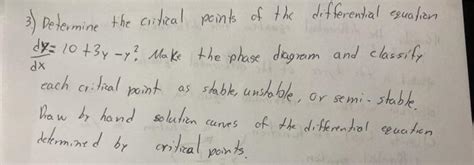 3) Determine the critical points of the differential equation
dy/dx = 10 + 3y - y². Make the phase diagram and classify
each critical point as stable, unstable, or semi-stable.
Draw by hand solution curves of the differential equation
determined by critical points.